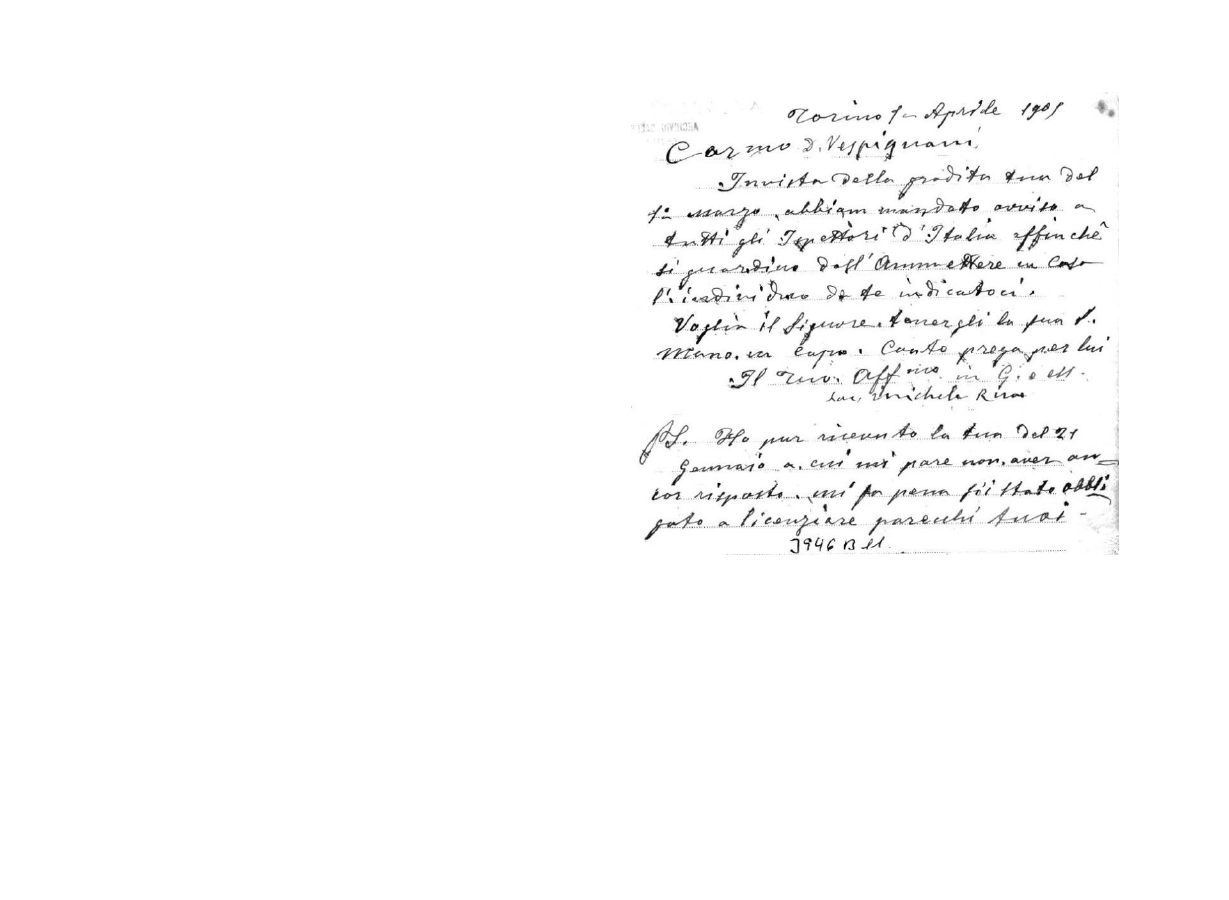 Torino 1- Aprile 1905
Carmo D. Vespignani,
In vista della gradita tua del
1ª marzo, abbiam mandato avviso a
tutti gli Ispettori d'Italia affinchè
si guardino dall'Ammettere in Casa
l'individuo da te indicatoci.
Voglia il Signore tenergli la sua S.
Mano in capo. Tanto prega per lui
Il tuo Aff mo in G. e M.
Sac. Michele Rua
PS. Ho pur ricevuto la tua del 21
Gennaio a cui mi pare non aver an-
cor risposto. mi fa pena sii stato obbli
gato a licenziare parecchi tuoi -
3946 B 11